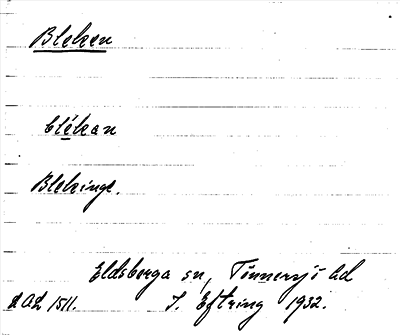 Bleken
blékan
Blekinge.
Eldsberga sn, Tönnersjö hd
LAL 1511. J. Eftring 1932.